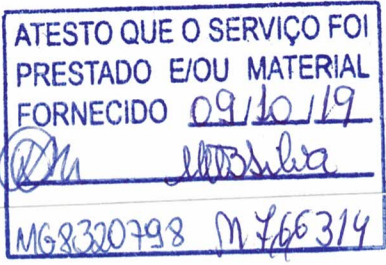 ATESTO QUE O SERVIÇO FOI
PRESTADO E/OU MATERIAL
FORNECIDO 09/10/19
MG8320798 M766314